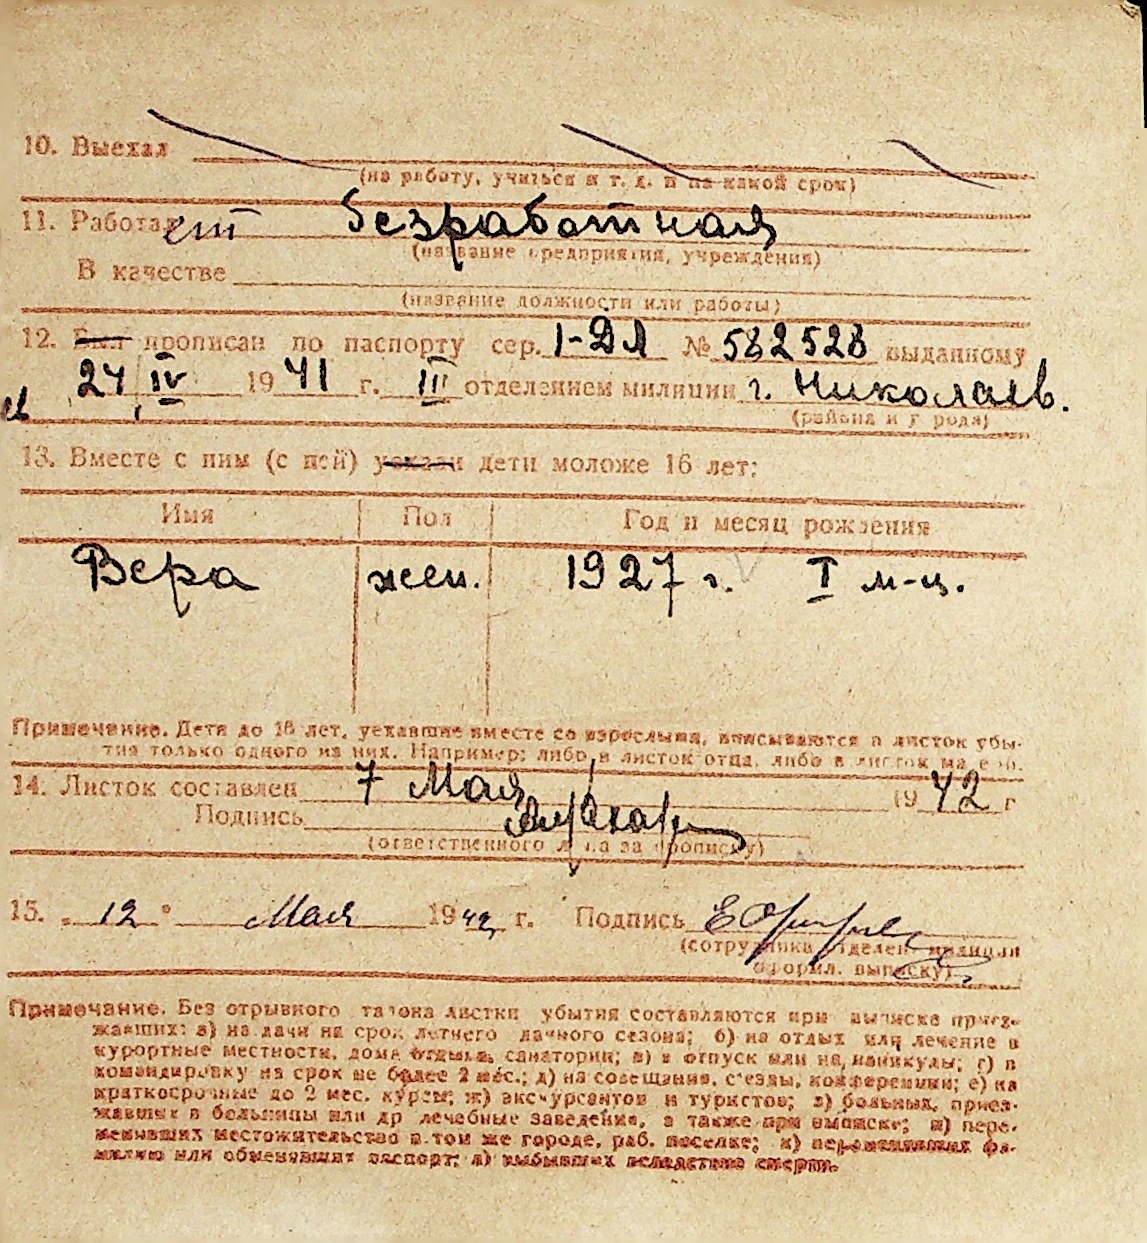 10. Выехал
(на работу, учиться и т. д. и на какой срок)
11. Работает безработная
(название предприятия, учреждения)
В качестве
(название должности или работы)
12. Был прописан по паспорту сер. 1-ДЛ № 582528 выданному
24 IV 1941 г. III отделением милиции г. Николаев.
(района и города)
13. Вместе с ним (с ней) уехали дети моложе 16 лет:
Имя Пол Год и месяц рождения
Вера жен. 1927 г. I м-ц.
Примечание. Дети до 16 лет, уехавшие вместе со взрослыми, вписываются в листок убы-
тия только одного из них. Например: либо в листок отца, либо в листок матери.
14. Листок составлен 7 Мая 1942 г
Подпись
(ответственного лица за прописку)
15. „12" Мая 1942 г. Подпись
(сотрудника отделен. милиции
оформл. выписку)
Примечание. Без отрывного талона листки убытия составляются при выписке приез-
жавших: а) на дачи на срок летнего дачного сезона; б) на отдых или лечение в
курортные местности, дома отдыха, санатории; в) в отпуск или на каникулы; г) в
командировку на срок не более 2 мес.; д) на совещания, съезды, конференции; е) на
краткосрочные до 2 мес. курсы; ж) экскурсантов и туристов; з) больных, приез-
жавших в больницы или др лечебные заведение, а также при выписке; и) пере-
менивших местожительство в том же городе, раб. поселке; к) переменивших фа-
милию или обменявших паспорт; л) выбывших вследствие смерти.